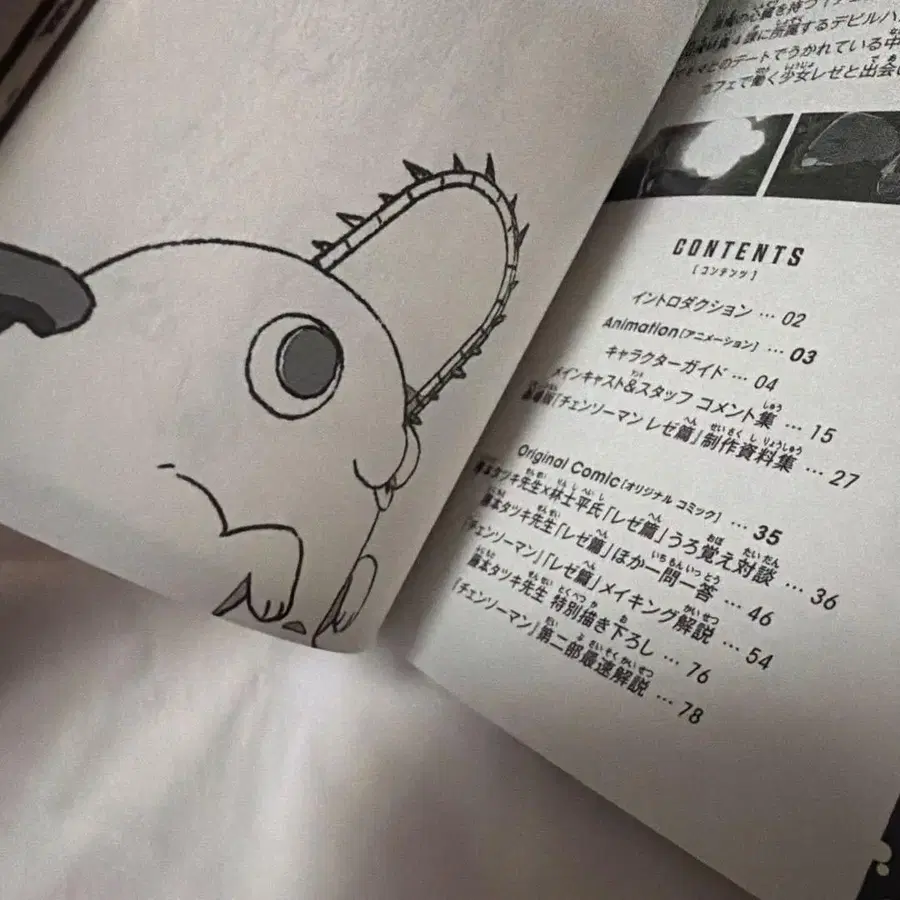 所属するデビルハ
とのデートでうかれている中
カフェで働く少女レゼと出会い
CONTENTS
[コンテンツ]
イントロダクション … 02
Animation[アニメーション] … 03
キャラクターガイド … 04
メインキャスト&スタッフ コメント集 … 15
劇場版『チェンソーマン レゼ篇』制作資料集 … 27
Original Comic[オリジナル コミック] … 35
藤本タツキ先生×林士平氏「レゼ篇」うろ覚え対談 … 36
藤本タツキ先生「レゼ篇」ほか一問一答 … 46
『チェンソーマン』「レゼ篇」メイキング解説 … 54
藤本タツキ先生 特別描き下ろし … 76
『チェンソーマン』第二部最速解説 … 78